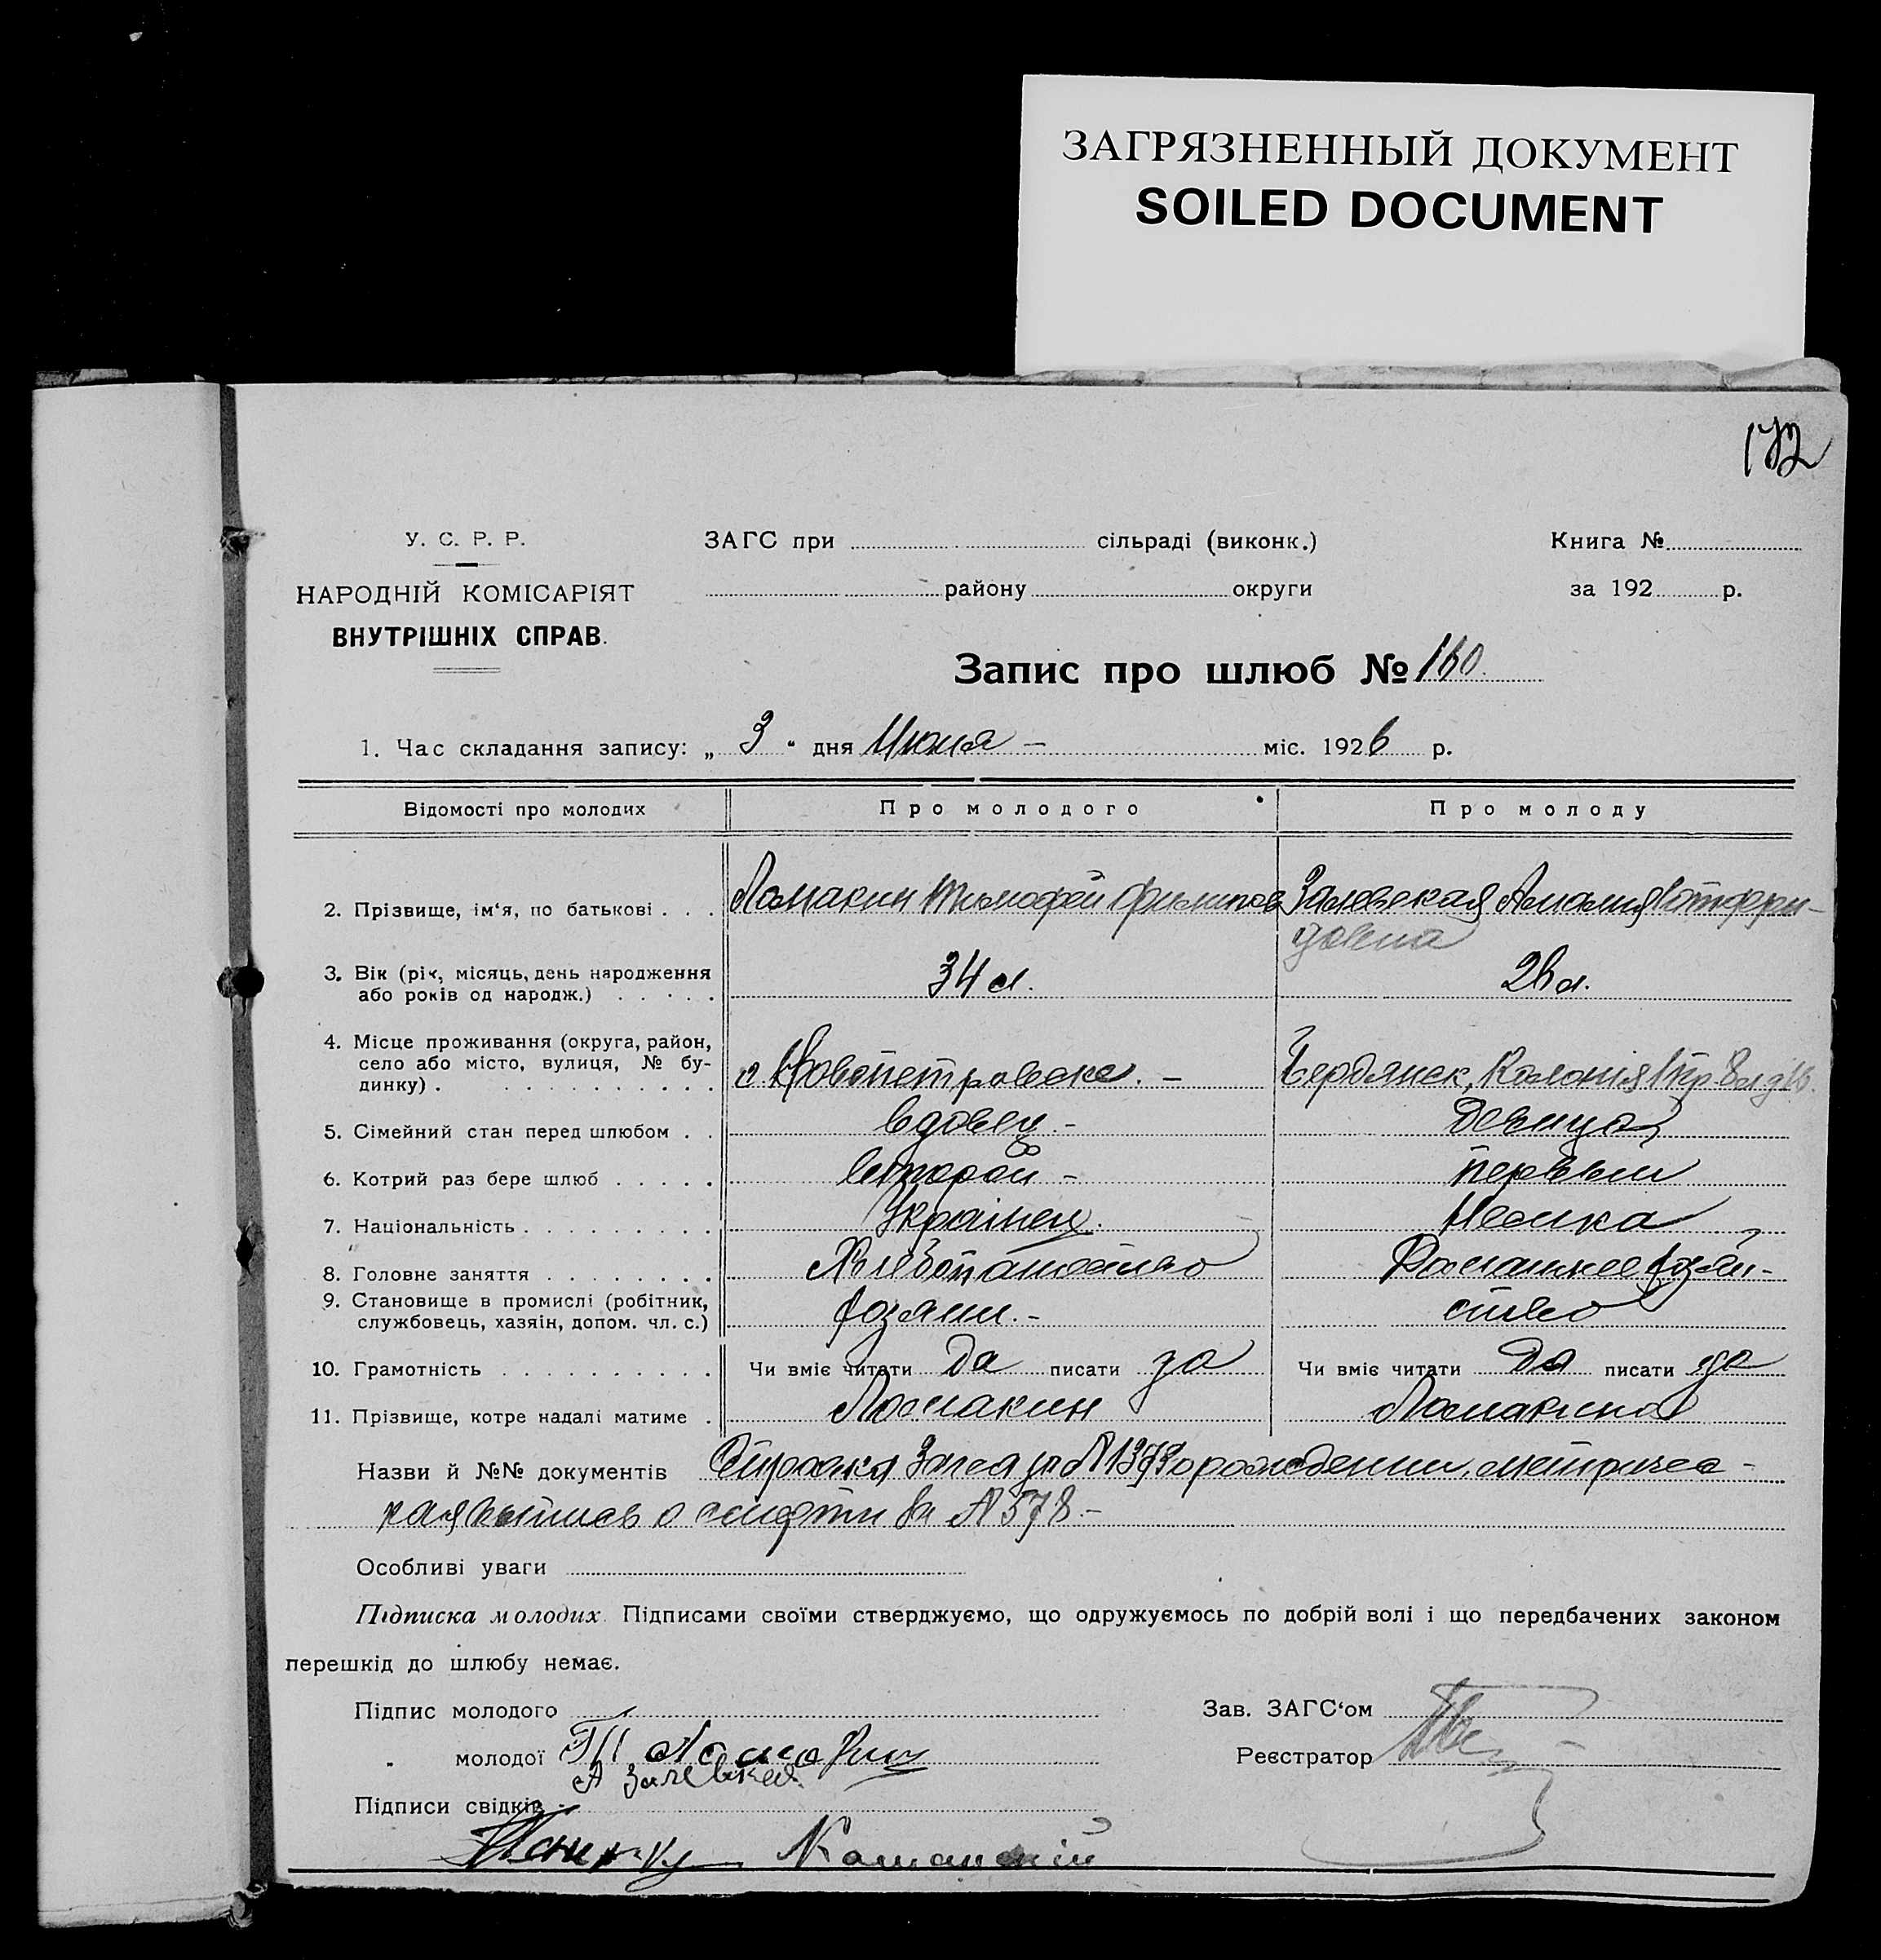 ЗАГРЯЗНЕННЫЙ ДОКУМЕНТ
SOILED DOCUMENT
172
У. С. Р. Р.
НАРОДНІЙ КОМІСАРІЯТ
ВНУТРІШНІХ СПРАВ.
ЗАГС при сільраді (виконк.)
району округи
Книга №
за 192 р.
Запис про шлюб № 160.
1. Час складання запису: „ 3 “ дня Июня – міс. 1926 р.
Відомості про молодих Про молодого Про молоду
2. Прізвище, ім‘я, по батькові . . . Ломакин Тимофей Филипов Залевская Амалия Готфри-
довна
3. Вік (рік, місяць, день народження
або років од народж.) . . . . . 34 л. 26 л.
4. Місце проживання (округа, район,
село або місто, вулиця, № бу-
динку) . . . . . . . . . . . . с. Новопетровске. – Бердянск, Колонія
5. Сімейний стан перед шлюбом . . вдовец – Девица
6. Котрий раз бере шлюб . . . . . второй – первый
7. Національність . . . . . . . . . Украінец. Немка
8. Головне заняття . . . . . . . . Хлебопашество Домашнее хозяй-
9. Становище в промислі (робітник,
службовець, хазяін, допом. чл. с.) хозяин. – ство
10. Грамотність . . . . . . . . . . Чи вміє читати да писати да Чи вміє читати да писати да
11. Прізвище, котре надалі матиме . Ломакин Ломакина
Назви й №№ документів Справка Загса за № 1393 о рождении, метричес-
кая выпись о смерти за № 578. –
Особливі уваги
Підписка молодих. Підписами своїми стверджуємо, що одружуємось по добрій волі і що передбачених законом
перешкід до шлюбу немає.
Підпис молодого
„ молодої Ломакин
А Залевская
Підписи свідків
Зав. ЗАГС‘ом
Реєстратор